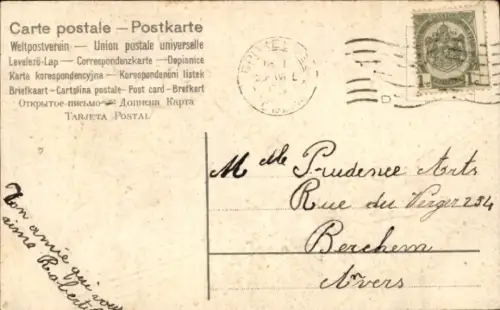 Carte postale — Postkarte
Weltpostverein — Union postale universelle
Levelező-Lap — Correspondenzkarte — Dopisnice
Karta korespondencyjna — Korespondenční lístek
Briefkaart - Cartolina postale - Post card - Brefkort
Открытое письмо — Дописна Карта
Tarjeta Postal
1
Mlle Prudence Arts
Rue du Verger 234
Berchem
Anvers
Ton amie qui vous
aime